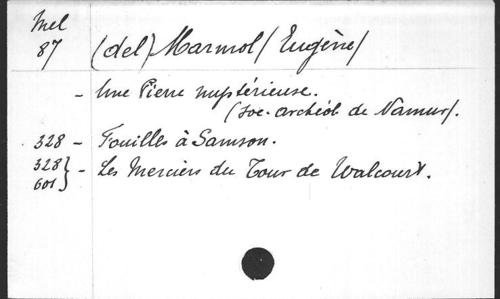 Mel
87
(del) Marmol / Eugène /
- Une Pierre mystérieuse.
(Soc. archéol de Namur).
328 - Fouilles à Samson.
328 } - Les Merciers du Tour de Walcourt.
601